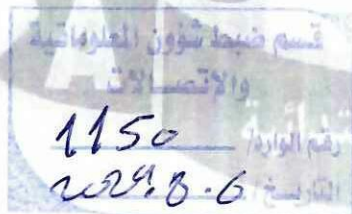 قسم ضبط شؤون المعلوماتية
والاتصالات
رقم الوارد/ 1150
التاريخ / 2024.8.6